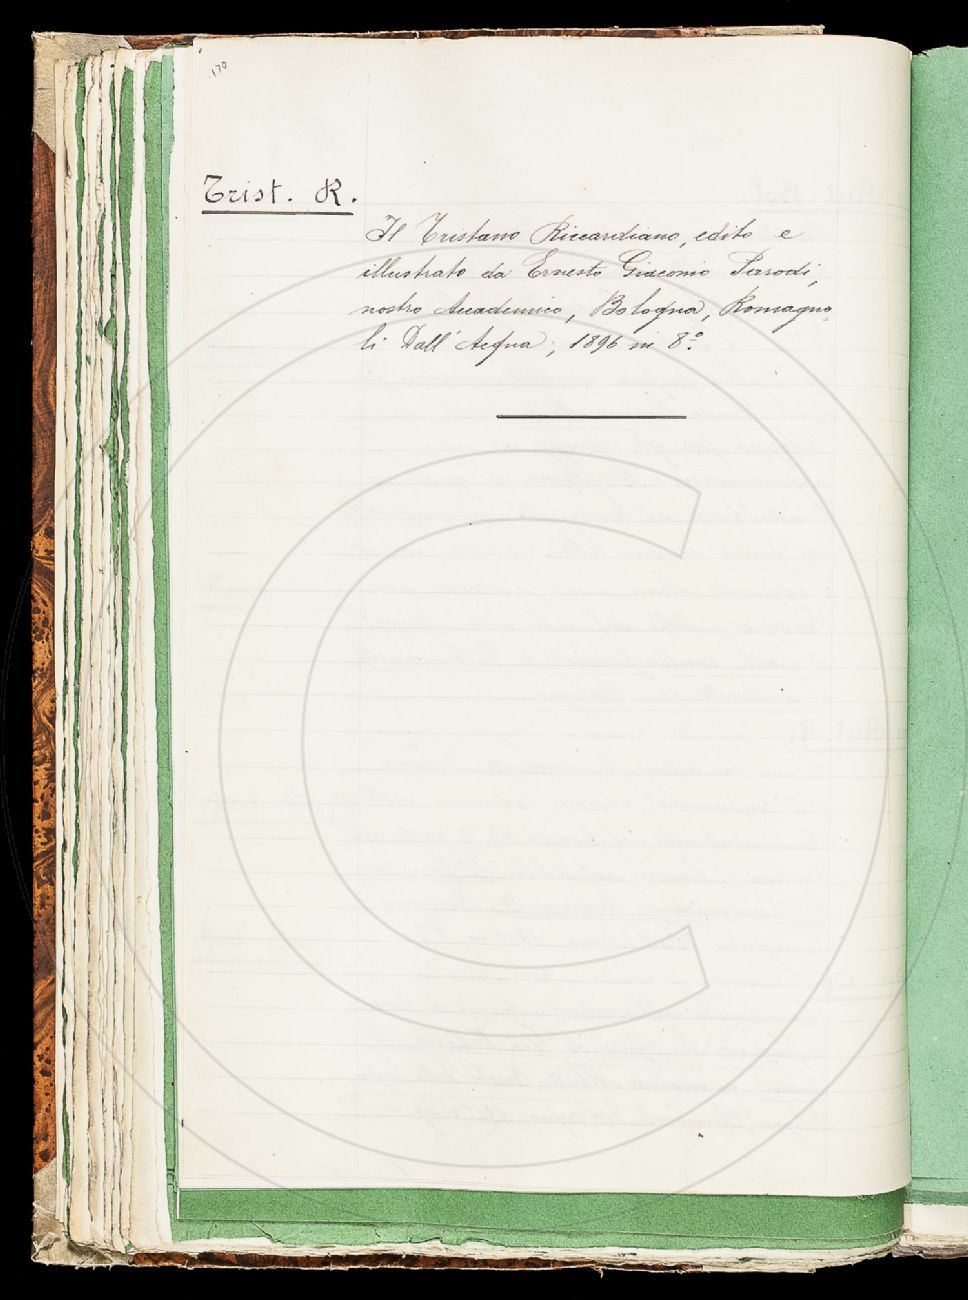 170
Trist. R.
Il Tristano Riccardiano, edito e
illustrato da Ernesto Giacomo Parodi,
nostro Accademico, Bologna, Romagno-
li Dall' Acqua, 1896 in 8º.